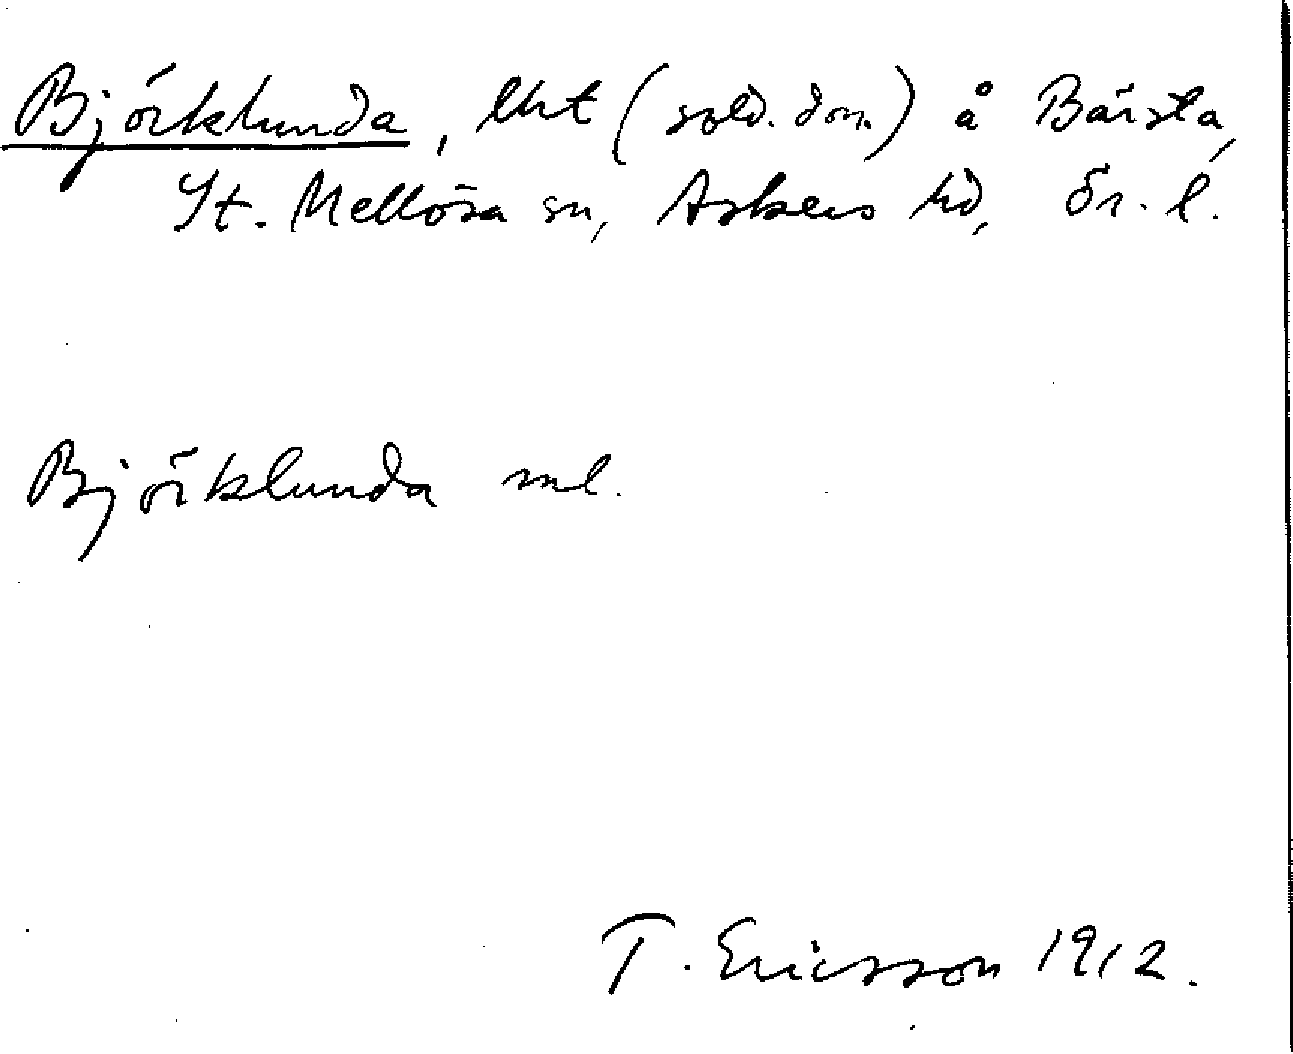 Björklunda, lht (sold. dom.) å Bärsta,
St. Mellösa sn, Askers hd, Ör. l.
Björklunda ml.
T. Ericsson 1912.